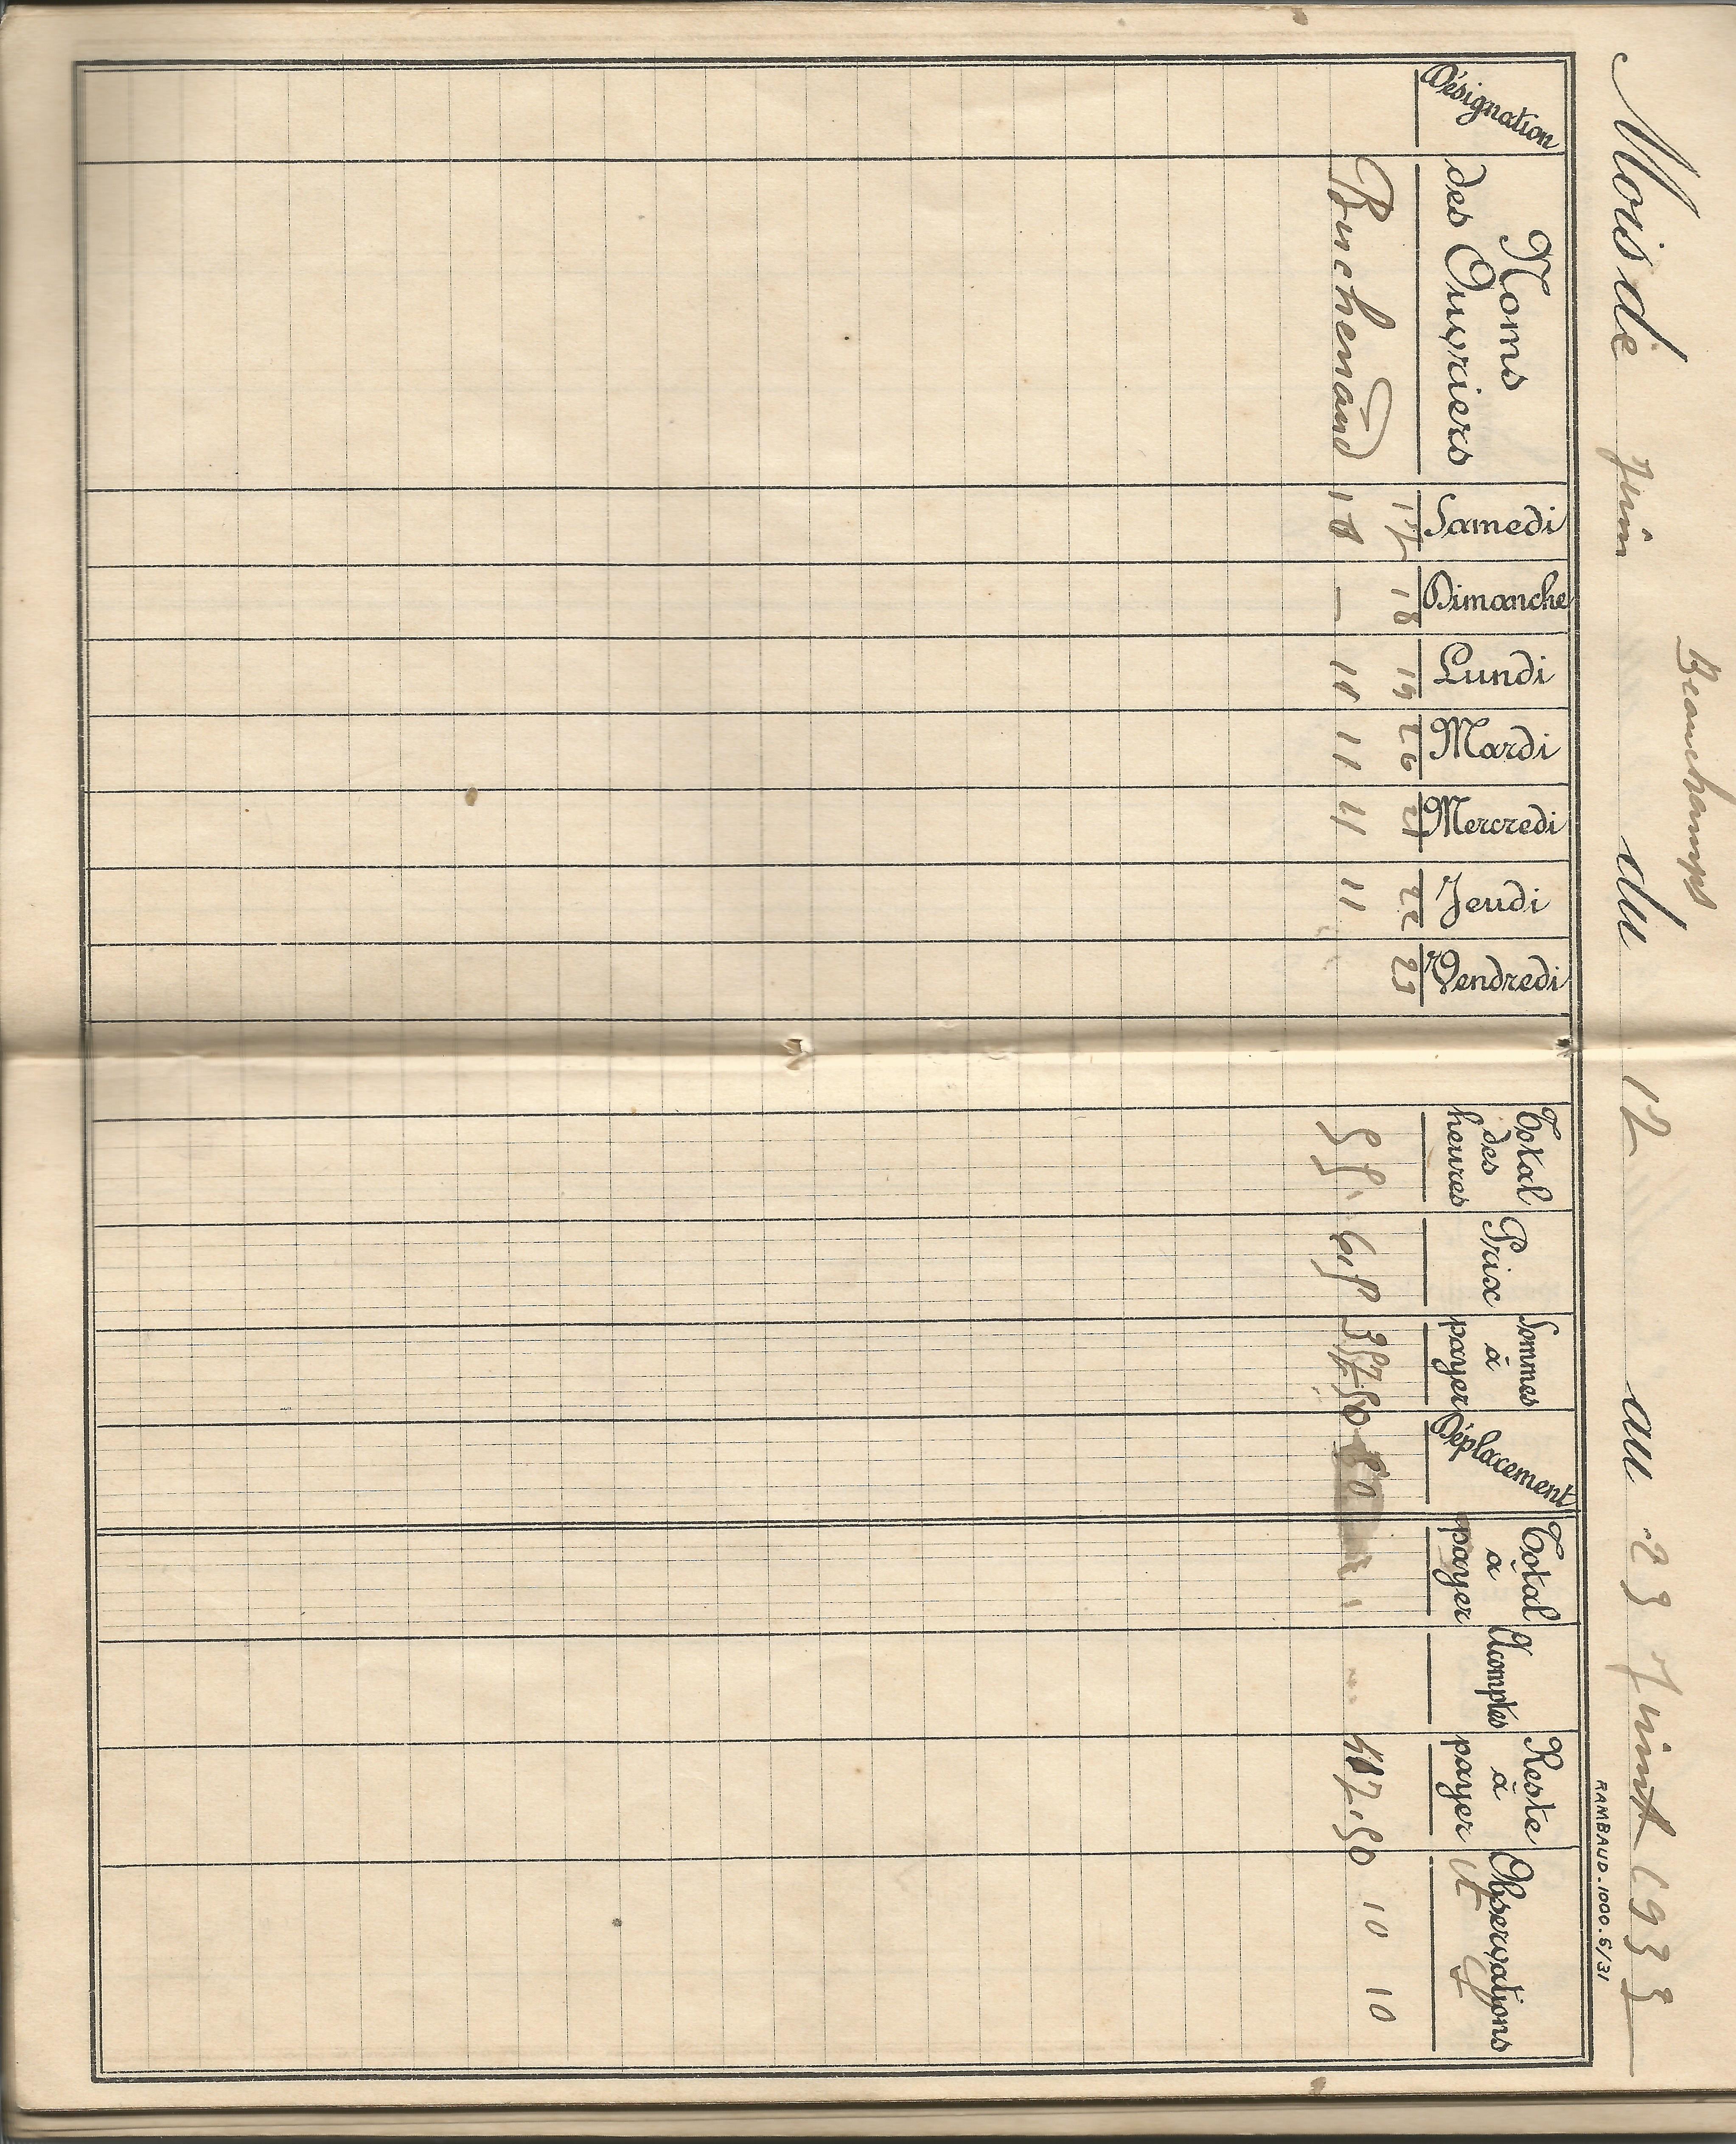 Beauchamps
Mois de Juin du 12 au 23 Juint 1933
RAMBAUD-1000.5/31
Désignation Noms des Ouvriers Samedi Dimanche Lundi Mardi Mercredi Jeudi Vendredi Total des heures Prix Sommes à payer Déplacement Total à payer Acomptes Reste à payer Observations
17 18 19 20 21 22 23
Buchenaud 10 — 10 11 11 11 55 6,50 357.50 50 407.50 10 10